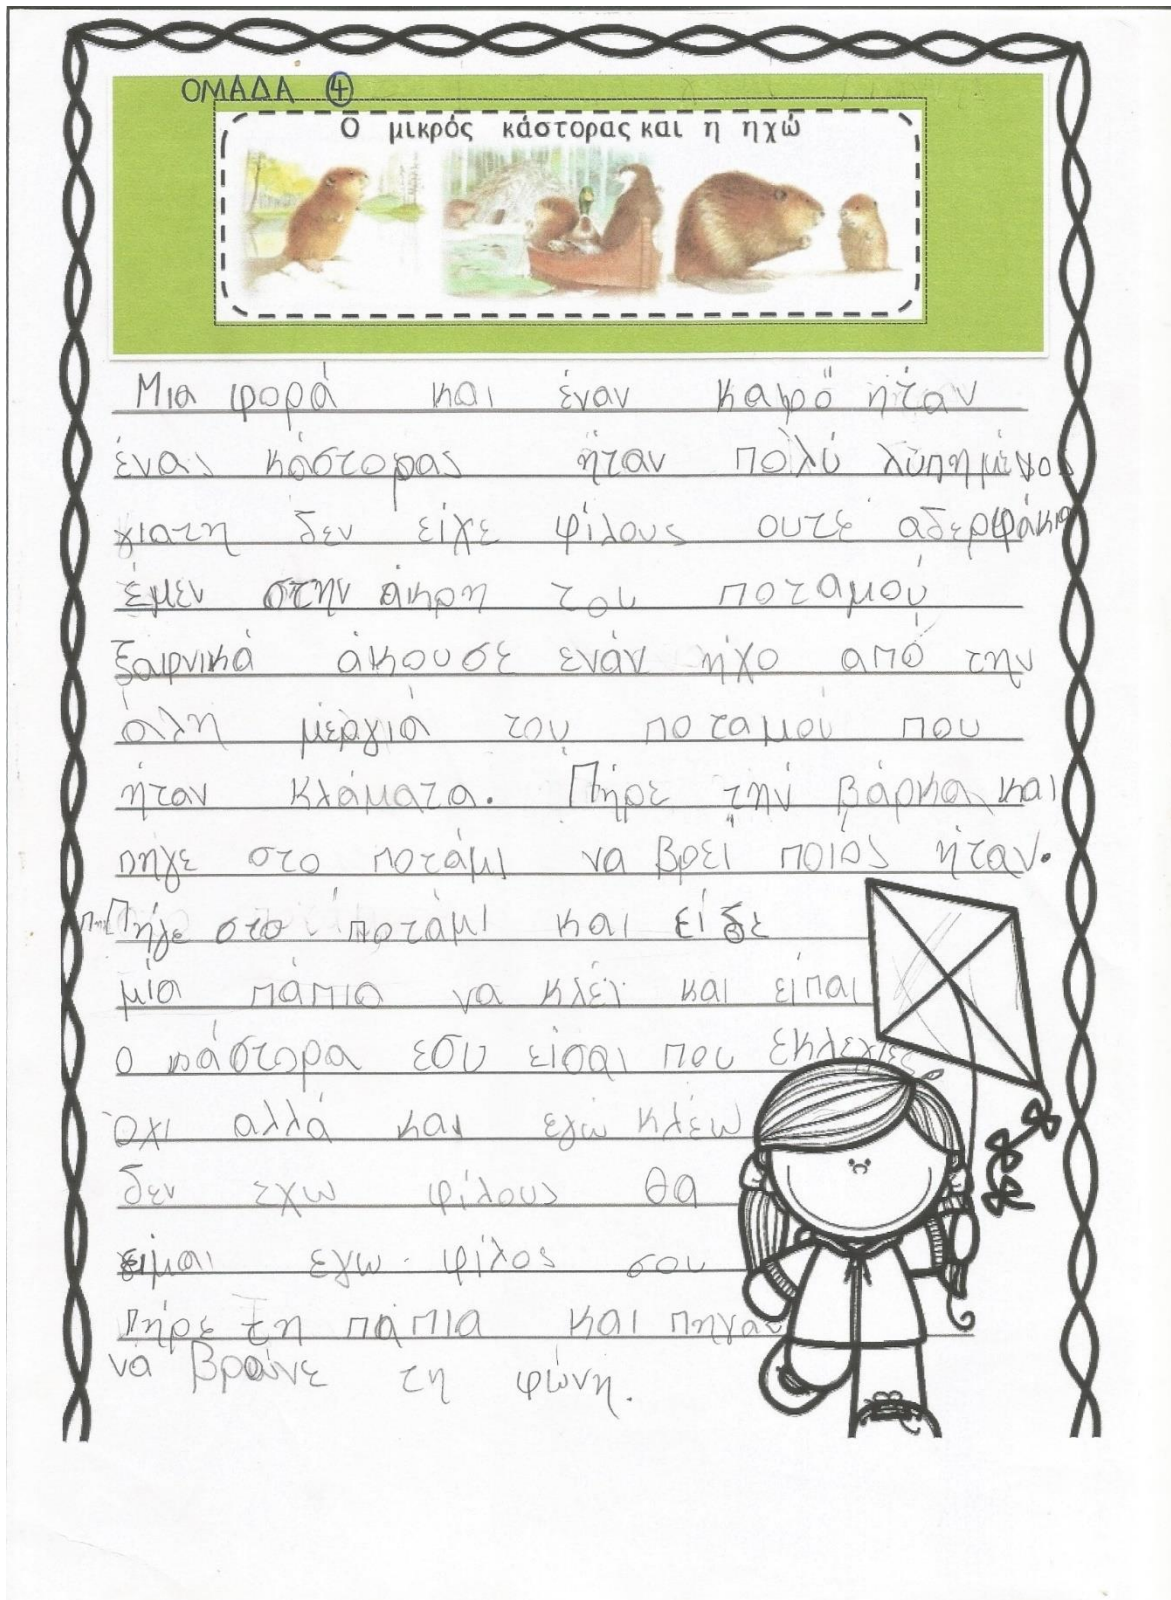 ΟΜΑΔΑ 4
Ο μικρός κάστορας και η ηχώ
Μια φορά και έναν καιρό ήταν
ένας κάστορας ήταν πολύ λυπημένος
γιατη δεν είχε φίλους ουτε αδερφάκια
έμεν στην άκρη του ποταμού
ξαφνικά άκουσε ενάν ήχο από την
άλη μεργιά του ποταμού που
ήταν κλάματα. Πήρε την βάρκα και
πηγε στο ποτάμι να βρει ποιός ήταν.
Πήγε στο ποτάμι και είδε
μία πάπια να κλέι και είπαι
ο κάστορα εσυ είσαι που
Όχι αλλά και εγώ κλέω
δεν εχω φίλους θα
είμαι εγω φίλος σου
πήρε τη πάπια και πηγαν
να βρούνε τη φώνη.